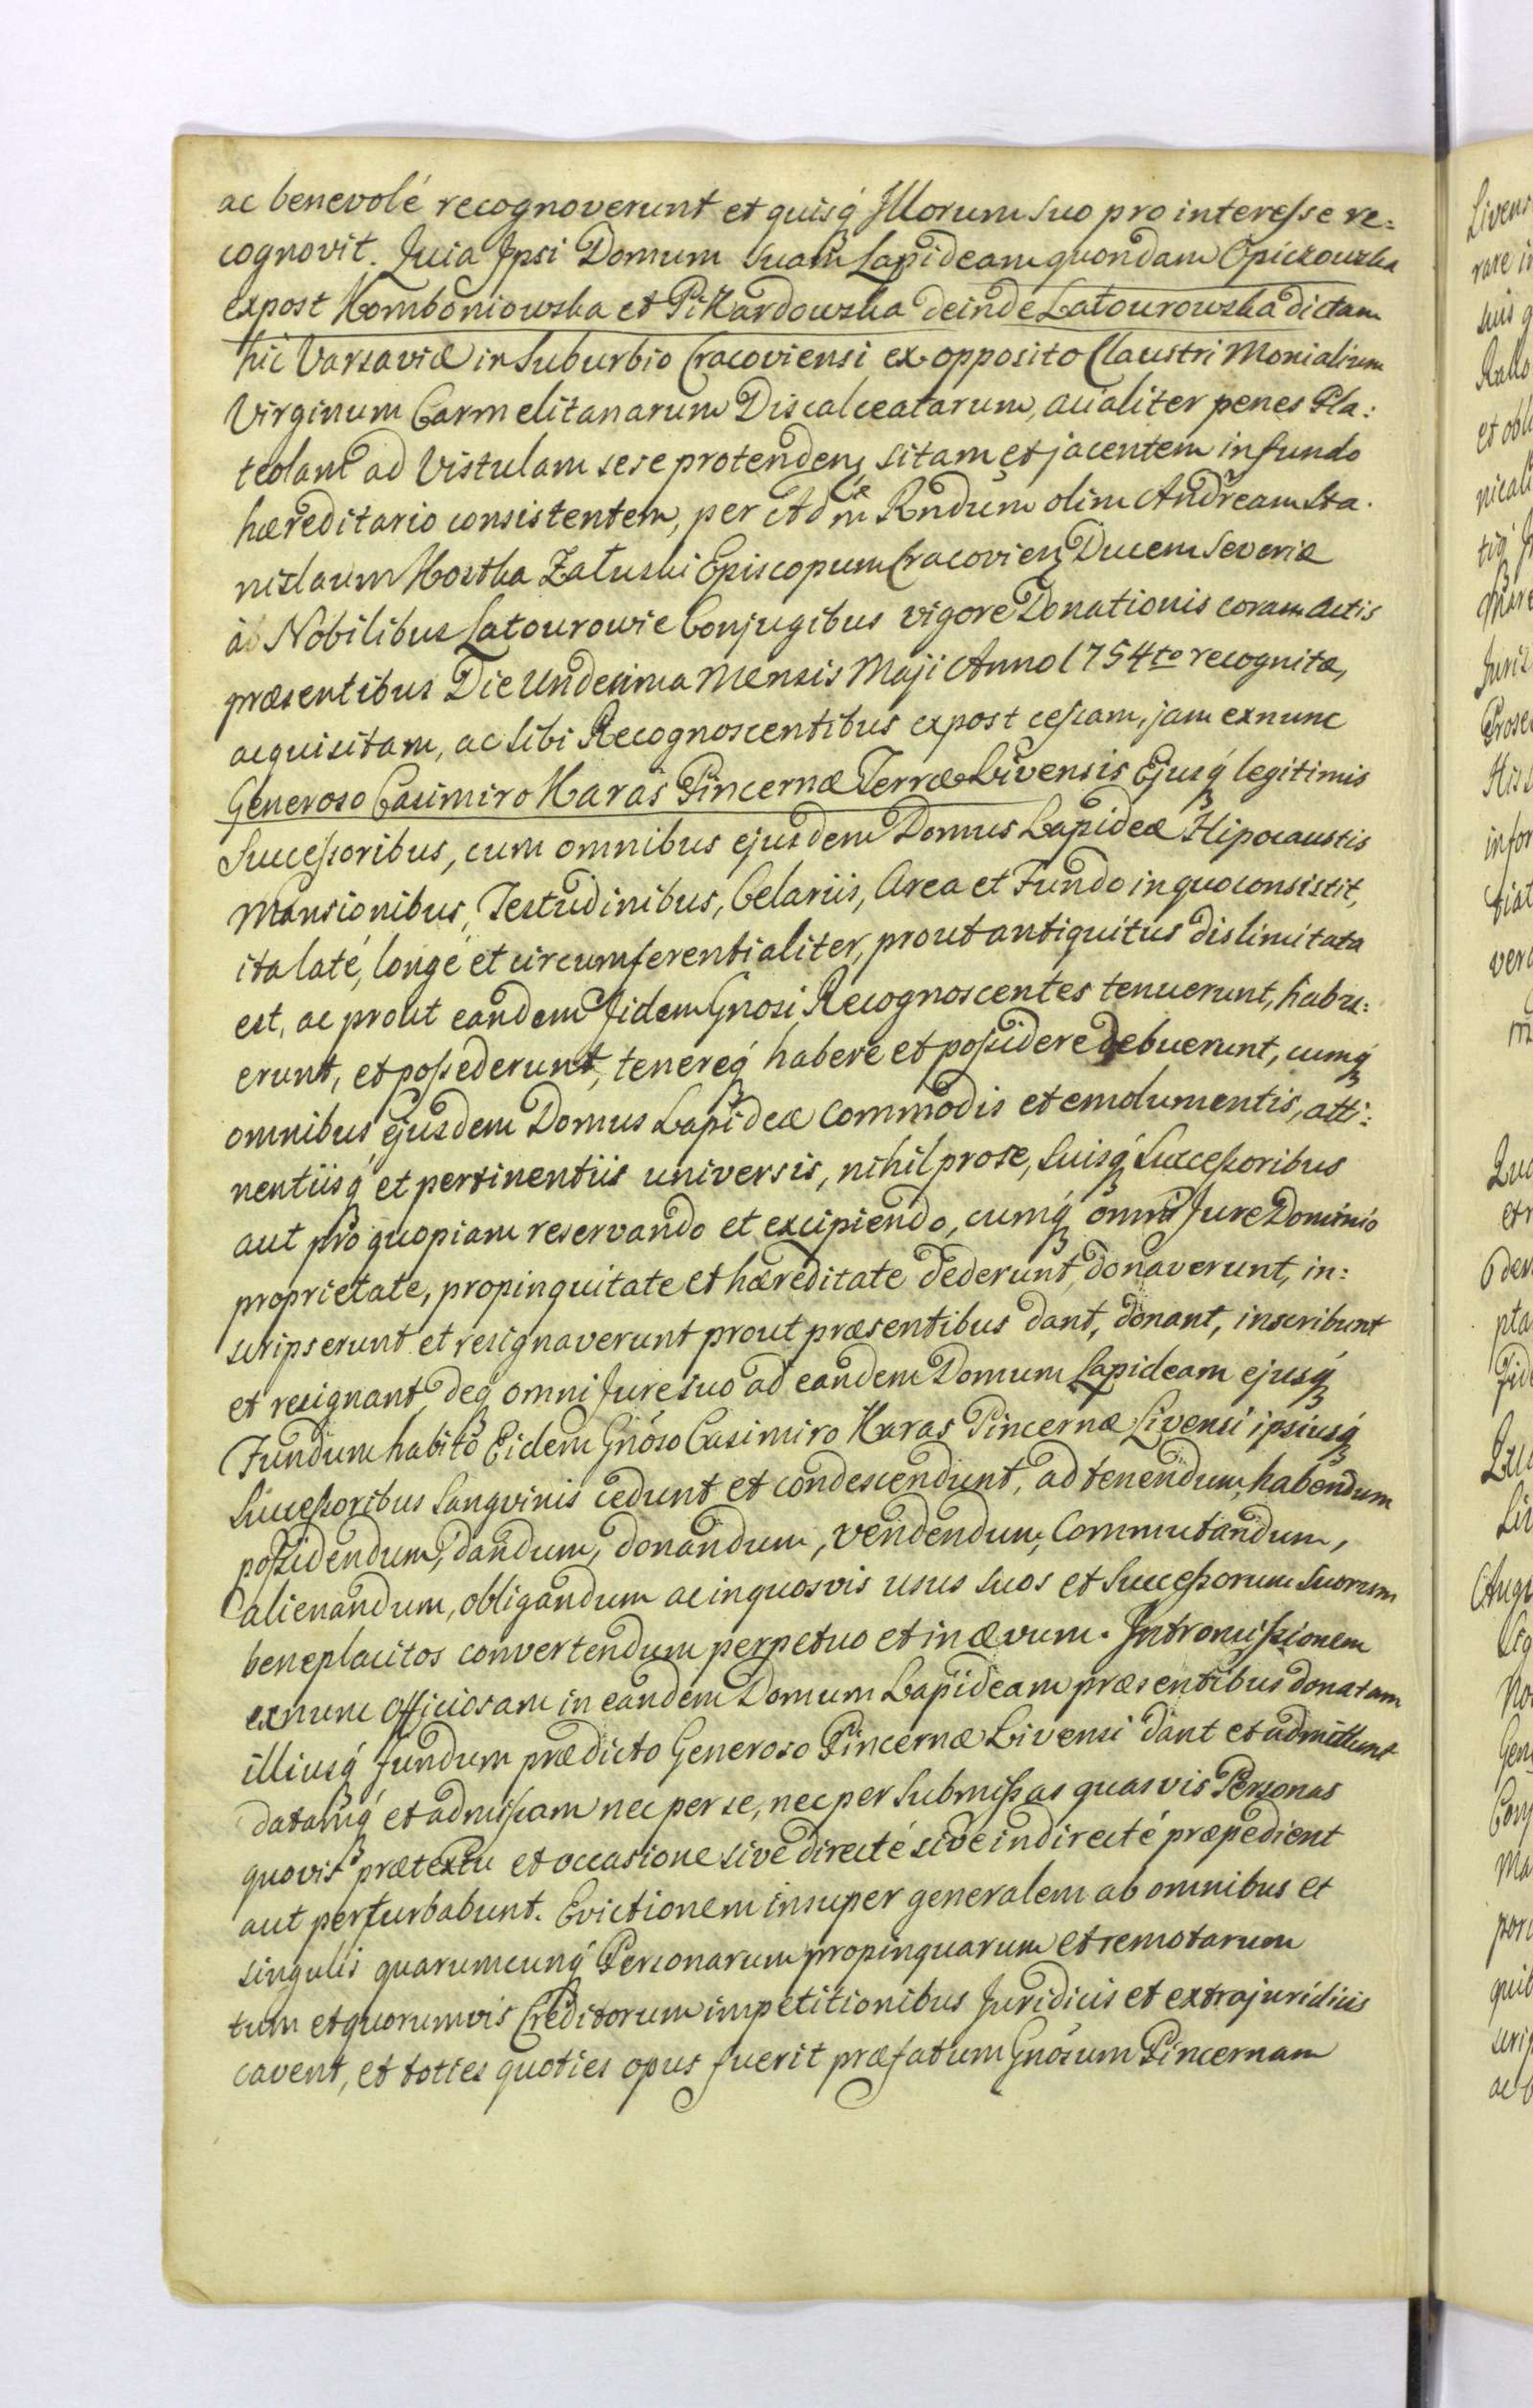 ac benevolé recognoverunt et quisq́ Illorum suo pro interesse re=
cognovit. Quia Ipsi Domum suam Lapideam quondam Opiczowska
expost Komboniowska et Pikardowska deinde Latourowska dictam
hic Varsaviæ in Suburbio Cracoviensi ex opposito Claustri Monialium
Virginum Carmelitanarum Discalceatarum, aüaliter penes Pla:
teolam ad Vistulam sese protendenꝫ sitam et jacentem in fundo
hæreditario consistentem, per Adm̃ Rñdum olim Andream Sta.
nislaum Kostka Załuski Episcopum Cracovienꝫ Ducem Severiæ
à Nobilibus Latourowie Conjugibus vigore Donationis coram Actis
præsentibus Die Undecima Mensis Maji Anno 1754to recognitæ,
acquisitam, ac sibi Recognoscentibus expost cessam, jam exnunc
Generoso Casimiro Karaś Pincernæ Terræ Livensis Ejusq́ legitimis
Successoribus, cum omnibus ejusdem Domus Lapideæ Hipocaustis
Mansionibus, Testudinibus, Celariis, Area et Fundo in quo consistit,
ita laté, longé et circumferentialiter, prout antiquitus dislimitata
est, ac prout eandem Iidem Gnosi Recognoscentes tenuerunt, habu:
erunt, et possederunt, tenereq́ habere et possidere debuerunt, cumq́
omnibus ejusdem Domus Lapideæ commodis et emolumentis, atti:
nentiisq́ et pertinentiis universis, nihil pro se, suisq́ Successoribus
aut pro quopiam reservando et excipiendo, cumq́ omni Jure Dominio
proprietate, propinquitate et hæreditate dederunt, donaverunt, in:
scripserunt et resignaverunt prout præsentibus dant, donant, inscribunt
et resignant, deq́ omni Jure suo ad eandem Domum Lapideam ejusq́
Fundum habito Eidem Gnoso Casimiro Karas Pincernæ Livensi ipsiusq́
Successoribus Sangvinis cedunt et condescendunt, ad tenendum, habendum
possidendum, dandum, donandum, vendendum, Commutandum,
alienandum, obligandum ac in quosvis usus suos et Successorum suorum
beneplacitos convertendum perpetuo et in ævum. Intromissionem
exnunc officiosam in eandem Domum Lapideam præsentibus donatam
illiusq́ fundum prædicto Generoso Pincernæ Livensi dant et admittunt
datamq́ et admissam nec per se, nec per submissas quasvis Personas
quovis prætextu et occasione sive directé sive indirecté præpedient
aut perturbabunt. Evictionem insuper generalem ab omnibus et
singulis quarumcunq́ Personarum propinquarum et remotarum
tum et quorumvis Creditorum impetitionibus Juridicis et extrajuridicis
cavent, et toties quoties opus fuerit præfatum Gnosum Pincernam